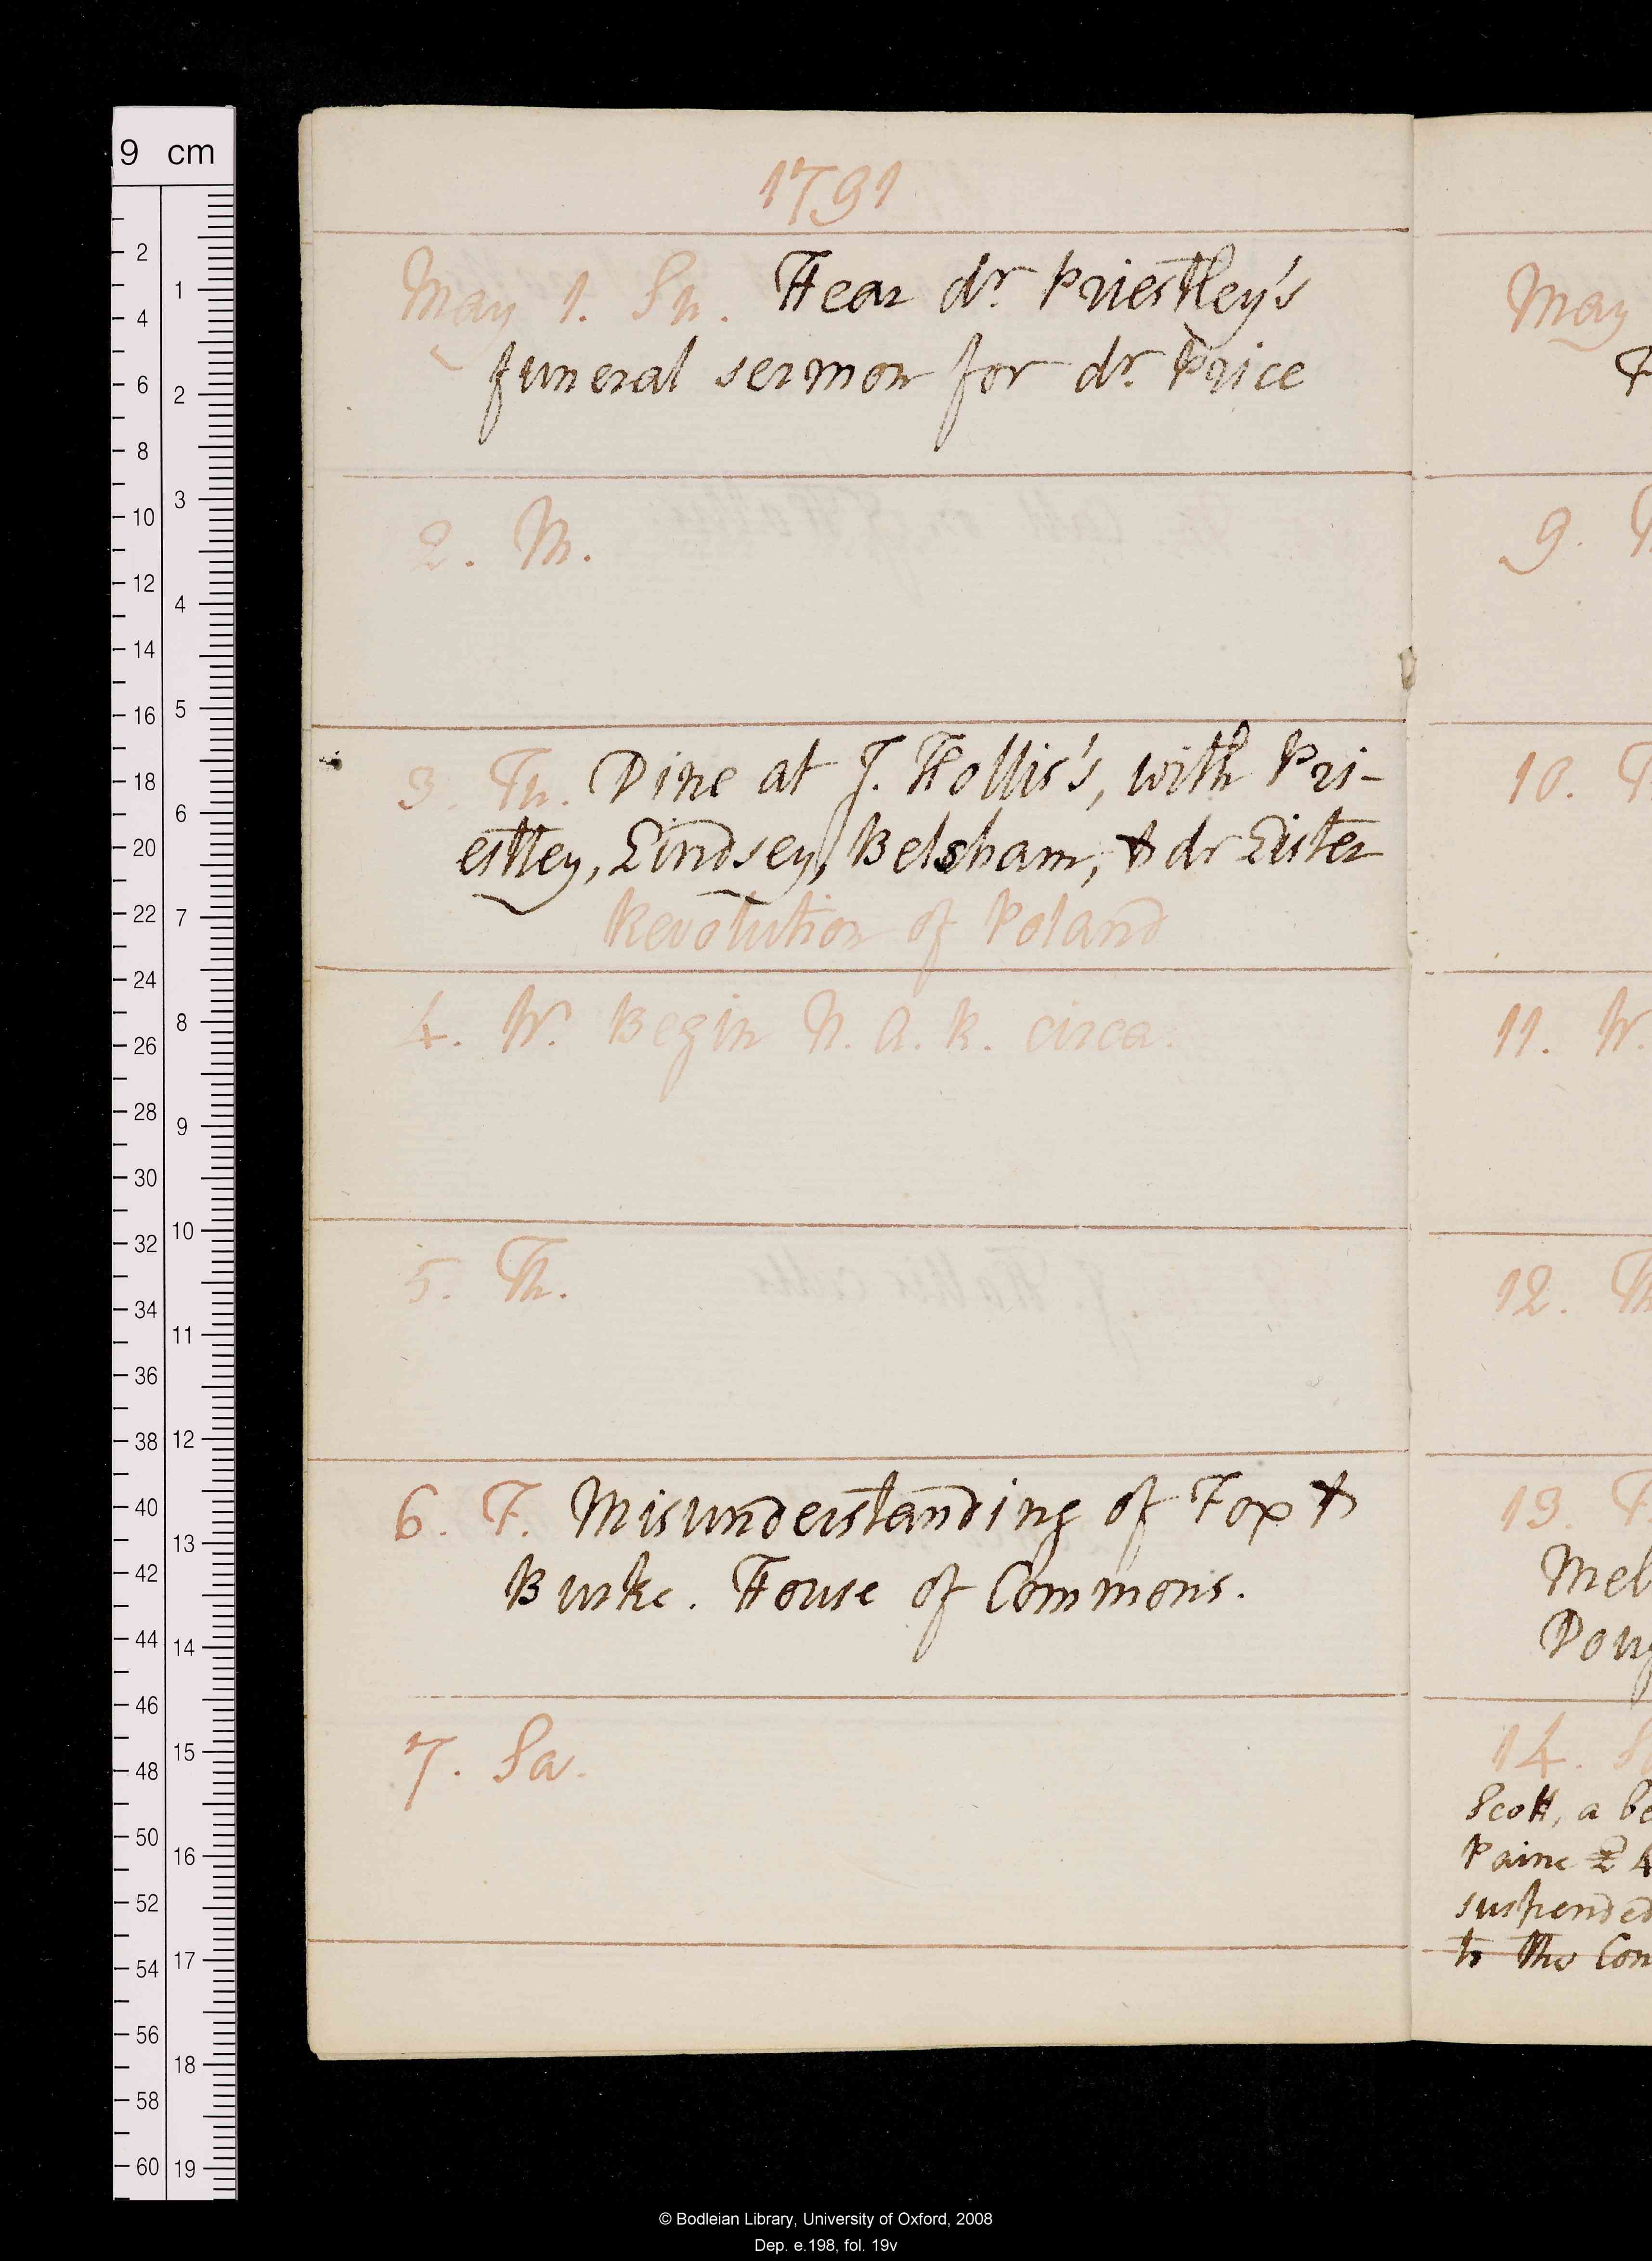 1791
May 1. Su. Hear dr. Priestley's
funeral sermon for dr. Price
2. M.
3. Tu. Dine at J. Hollis's, with Pri-
estley, Lindsey, Belsham, & dr Lister
Revolution of Poland
4. W. Begin N. A. R. circa.
5. Th.
6. F. Misunderstanding of Fox &
Burke. House of Commons.
7. Sa.
May
9.
10. T
11. W.
12. Th
13. F.
Mel
Doug
14. S
Scott, a be
Paine
suspended
to the Con
9 cm
2
4
6
8
10
12
14
16
18
20
22
24
26
28
30
32
34
36
38
40
42
44
46
48
50
52
54
56
58
60
1
2
3
4
5
6
7
8
9
10
11
12
13
14
15
16
17
18
19
© Bodleian Library, University of Oxford, 2008
Dep. e.198, fol. 19v